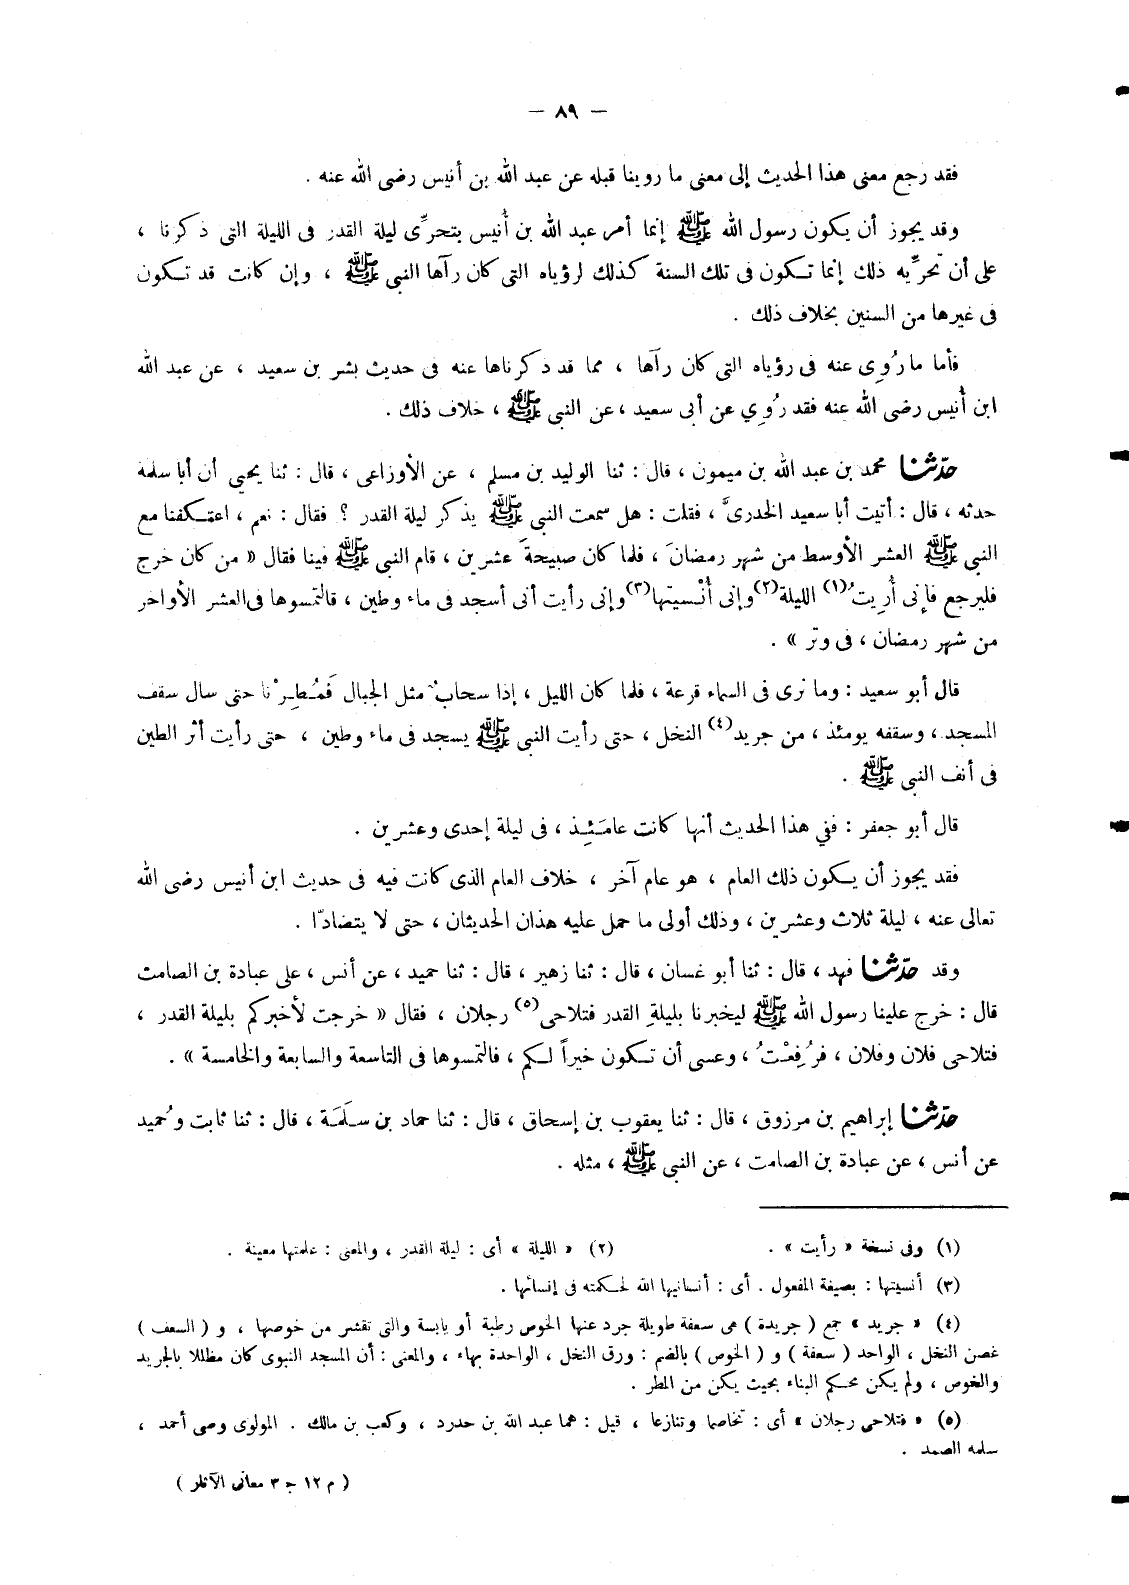 — ٨٩ —
فقد رجع معنى هذا الحديث إلى معنى ما روينا قبله عن عبد الله بن أنيس رضى الله عنه .
وقد يجوز أن يكون رسول الله ﷺ إنما أمر عبد الله بن أُنيس بتحرِّى ليلة القدر فى الليلة التى ذكرنا ،
على أن تحرِّيه ذلك إنما تكون فى تلك السنة كذلك لرؤياه التى كان رآها النبى ﷺ ، وإن كانت قد تكون
فى غيرها من السنين بخلاف ذلك .
فأما ما رُوِى عنه فى رؤياه التى كان رآها ، مما قد ذكرناها عنه فى حديث بشر بن سعيد ، عن عبد الله
ابن أُنيس رضى الله عنه فقد رُوِي عن أبى سعيد ، عن النبى ﷺ ، خلاف ذلك .
حدّثنا محمد بن عبد الله بن ميمون ، قال : ثنا الوليد بن مسلم ، عن الأوزاعى ، قال : ثنا يحيى أن أبا سلمة
حدثه ، قال : أتيت أبا سعيد الخدرىَّ ، فقلت : هل سمعت النبى ﷺ يذكر ليلة القدر ؟ فقال : نعم ، اعتكفنا مع
النبى ﷺ العشر الأوسط من شهر رمضانَ ، فلما كان صبيحةَ عشرين ، قام النبى ﷺ فينا فقال « من كان خرج
فليرجع فإنى أُرِيتُ(١) الليلة(٢) وإنى أُنْسيتها(٣) وإنى رأيت أنى أسجد فى ماء وطين ، فالتمسوها فى العشر الأواخر
من شهر رمضان ، فى وتر » .
قال أبو سعيد : وما نرى فى السماء قزعة ، فلما كان الليل ، إذا سحابٌ مثل الجبال فَمُطِرْنا حتى سال سقف
المسجد ، وسقفه يومئذ ، من جريد(٤) النخل ، حتى رأيت النبى ﷺ يسجد فى ماء وطين ، حتى رأيت أثر الطين
فى أنف النبى ﷺ .
قال أبو جعفر : ففي هذا الحديث أنها كانت عامَئِذ ، فى ليلة إحدى وعشرين .
فقد يجوز أن يكون ذلك العام ، هو عام آخر ، خلاف العام الذى كانت فيه فى حديث ابن أنيس رضى الله
تعالى عنه ، ليلة ثلاث وعشرين ، وذلك أولى ما حمل عليه هذان الحديثان ، حتى لا يتضادّا .
وقد حدّثنا فهد ، قال : ثنا أبو غسان ، قال : ثنا زهير ، قال : ثنا حميد ، عن أنس ، على عبادة بن الصامت
قال : خرج علينا رسول الله ﷺ ليخبرنا بليلةِ القدر فتلاحى(٥) رجلان ، فقال « خرجت لأخبركم بليلة القدر ،
فتلاحى فلان وفلان ، فرُفِعْتُ ، وعسى أن تكون خيراً لكم ، فالتمسوها فى التاسعة والسابعة والخامسة » .
حدّثنا إبراهيم بن مرزوق ، قال : ثنا يعقوب بن إسحاق ، قال : ثنا حماد بن سلَمَة ، قال : ثنا ثابت وحُميد
عن أنس ، عن عبادة بن الصامت ، عن النبى ﷺ ، مثله .
(١) وفى نسخة « رأيت » . (٢) « الليلة » أى : ليلة القدر ، والمعنى : علمتها معينة .
(٣) أنسيتها : بصيغة المفعول . أى : أنسانيها الله لحكمته فى إنسائها .
(٤) « جريد » جمع ( جريدة ) هى سعفة طويلة جرد عنها الخوص رطبة أو يابسة والتى تقشر من خوصها ، و ( السعف )
غصن النخل ، الواحد ( سعفة ) و ( الخوص ) بالضم : ورق النخل ، الواحدة بهاء ، والمعنى : أن المسجد النبوى كان مظللا بالجريد
والخوص ، ولم يكن محكم البناء بحيث يكن من المطر .
(٥) « فتلاحى رجلان » أى : تخاصما وتنازعا ، قيل : هما عبد الله بن حدرد ، وكعب بن مالك . المولوى وصى أحمد ،
سلمه الصمد .
( م ١٢ جـ ٣ معانى الآثار )